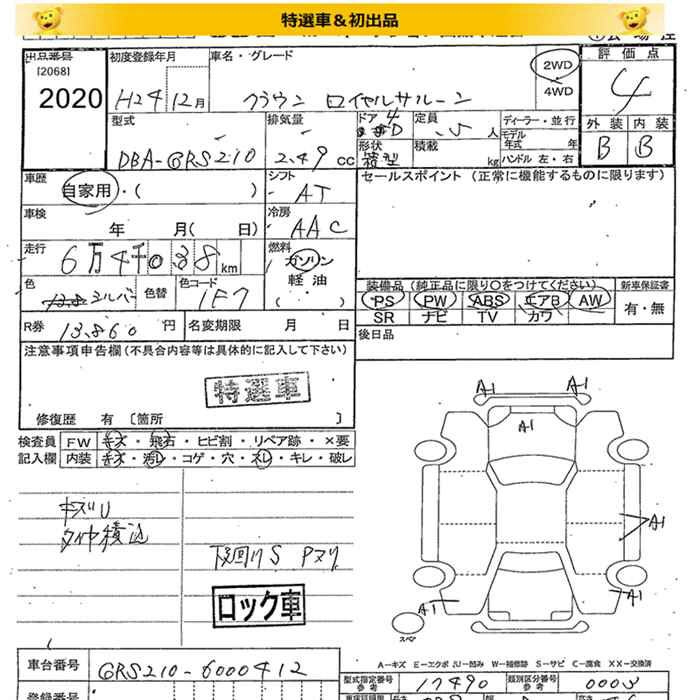 特選車＆初出品
出品番号 初度登録年月 車名・グレード 2WD 評価点
[2068] 4WD
2020 H24 12月 クラウン ロイヤルサルーン 4
型式 排気量 ドア 定員 ディーラー・並行 外装 内装
4 D 5人 モデル年式 年
DBA-GRS210 2.49cc 形状 積載 B B
箱型 kg ハンドル 左・右
車歴 シフト セールスポイント（正常に機能するものに限ります）
自家用・( ) AT
車検 冷房
年 月( 日) AAC
走行 燃料
6万4千038km ガソリン
軽油
色 色替 色コード ( ) 装備品（純正品に限り○をつけてください） 新車保証書
シルバー 1F7 PS PW ABS エアB AW 有・無
SR ナビ TV カワ
R券 13,860円 名変期限 月 日 後日品
注意事項申告欄（不具合内容等は具体的に記入して下さい）
特選車
修復歴 有〔箇所 〕
検査員 FW キズ・飛石・ヒビ割・リペア跡・×要
記入欄 内装 キズ・汚レ・コゲ・穴・スレ・キレ・破レ
A1 A1
A1
キズU
タイヤ積込
下回りS Pスリ
A1
ロック車
A1 A1
スペア
A－キズ E－エクボ U－凹み W－補修跡 S－サビ C－腐食 XX－交換済
車台番号 GRS210-6000412
型式指定番号 参考 17490 類別区分番号 参考 0003
登録番号